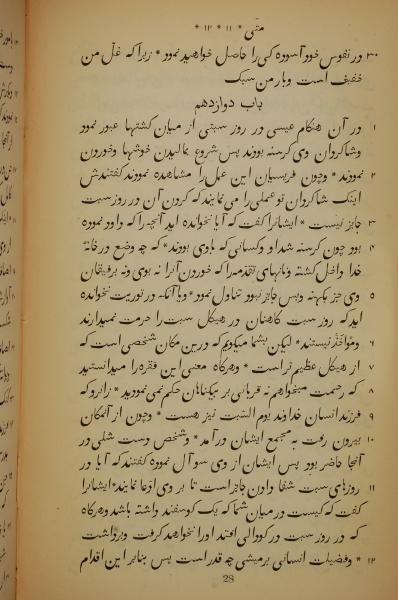 متّی * ۱۱ * ۱۲ *
۳۰ در نفوس خود آسوده کی را حاصل خواهید نمود * زیرا که غل من
خفیف است و بار من سبک
باب دوازدهم
۱ در آن هنگام عیسی در روز سبتی از میان کشتها عبور نمود
وشاکردان وی کرسنه بودند پس شروع بمالیدن خوشها وخوردن
۲ نمودند * وچون فریسیان این عمل را مشاهده نمودند کفتندش
اینک شاکردان تو عملی را می نمایند که کردن آن در روز سبت
۳ جائز نیست * ایشانرا کفت که آیا نخوانده اید آنچه را که داود نموده
۴ بود چون کرسنه شد او وکسانی که باوی بودند * که چه وضع در خانهٔ
خدا داخل کشته ونانهای تقدمه را که خوردن آنرا نه بوی ونه برفیقان
۵ وی جز بکهنه وبس جائز نبود تناول نمود * ویا آنکه در توریت نخوانده
اید که روز سبت کاهنان در هیکل سبت را حرمت نمیدارند
۶ ومؤاخذ نیستند * لیکن بشما میکویم که درین مکان شخصی است که
۷ از هیکل عظیم تر است * وهرکاه معنی این فقره را میدانستید
۸ که رحمت میخواهم نه قربانی بر بیکناهان حکم نمی نمودید * زانرو که
۹ فرزند انسان خداوند یوم السّبت نیز هست * وچون از آنمکان
۱۰ بیرون رفت به مجمع ایشان در آمد * وشخص دست شلی در
آنجا حاضر بود پس ایشان از وی سؤال نموده کفتند که آیا در
۱۱ روزهای سبت شفا دادن جائز است تا بر وی ادّعا نمایند * ایشانرا
کفت که کیست در میان شما که یک کوسفند داشته باشد وهرکاه
که در روز سبت در کودالی افتد اورا نخواهد کرفت وبرداشت
۱۲ * وفضیلت انسانی بر میشی چه قدر است پس بنابر این اقدام
28